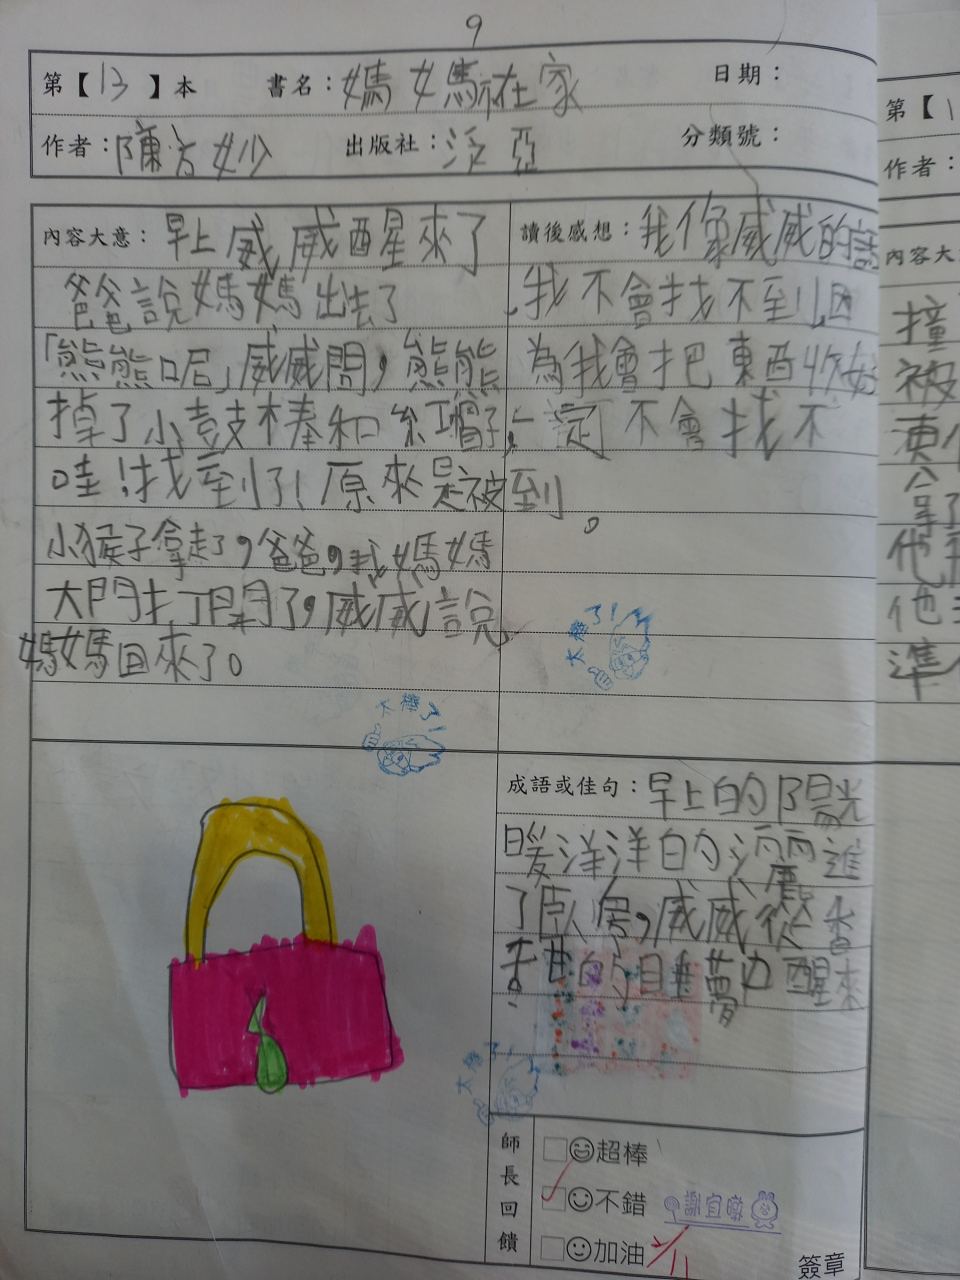 9
第【13】本 書名：媽媽不在家 日期：
作者：陳方妙 出版社：泛亞 分類號：
內容大意：早上威威醒來了
爸爸說媽媽出去了
「熊熊呢」威威問，熊熊
掉了小鼓棒和紅帽子，
哇！找到了！原來是被
小猴子拿走了，爸爸，找媽媽
大門打開了，威威說
媽媽回來了。
讀後感想：我像威威的話
，我不會找不到，因
為我會把東西收好
一定不會找不
到。
太棒了！
太棒了！
成語或佳句：早上的陽光
暖洋洋的灑進
了臥房，威威從香
香甜的睡夢中醒來
。
太棒了！
師長回饋
超棒
不錯
加油
謝宜
簽章
第【1
作者：
內容大
撞
被
東
拿了
他
他
準